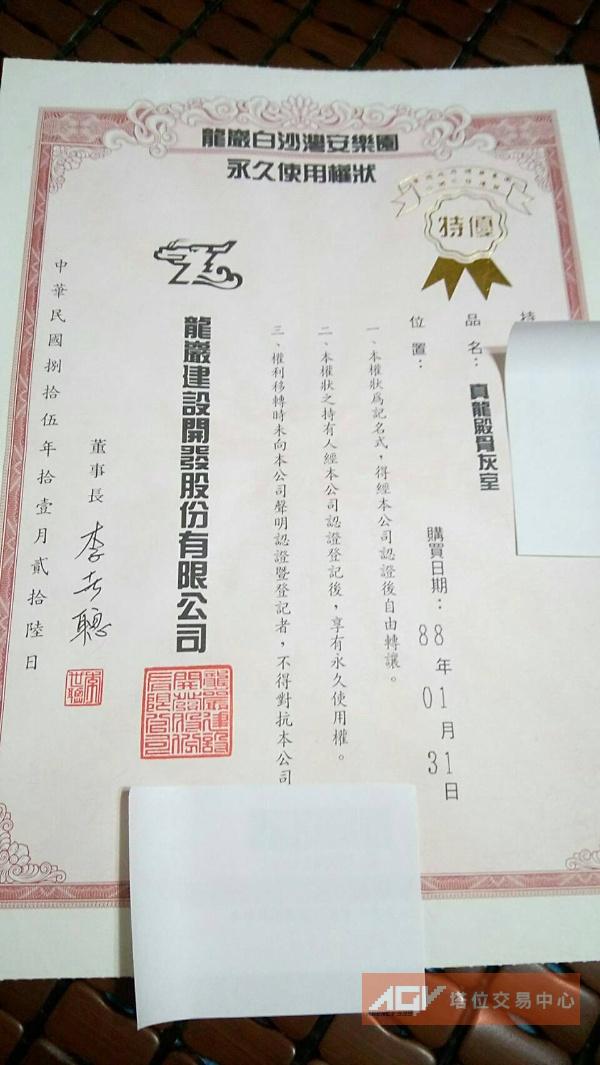 龍巖白沙灣安樂園
永久使用權狀
特優
持
品名：真龍殿骨灰室
位置：
購買日期：88年01月31日
一、本權狀為記名式，得經本公司認證後自由轉讓。
二、本權狀之持有人經本公司認證登記後，享有永久使用權。
三、權利移轉時未向本公司聲明認證暨登記者，不得對抗本公司
龍巖建設開發股份有限公司
董事長 李世聰
中華民國捌拾伍年拾壹月貳拾陸日
AGV 塔位交易中心